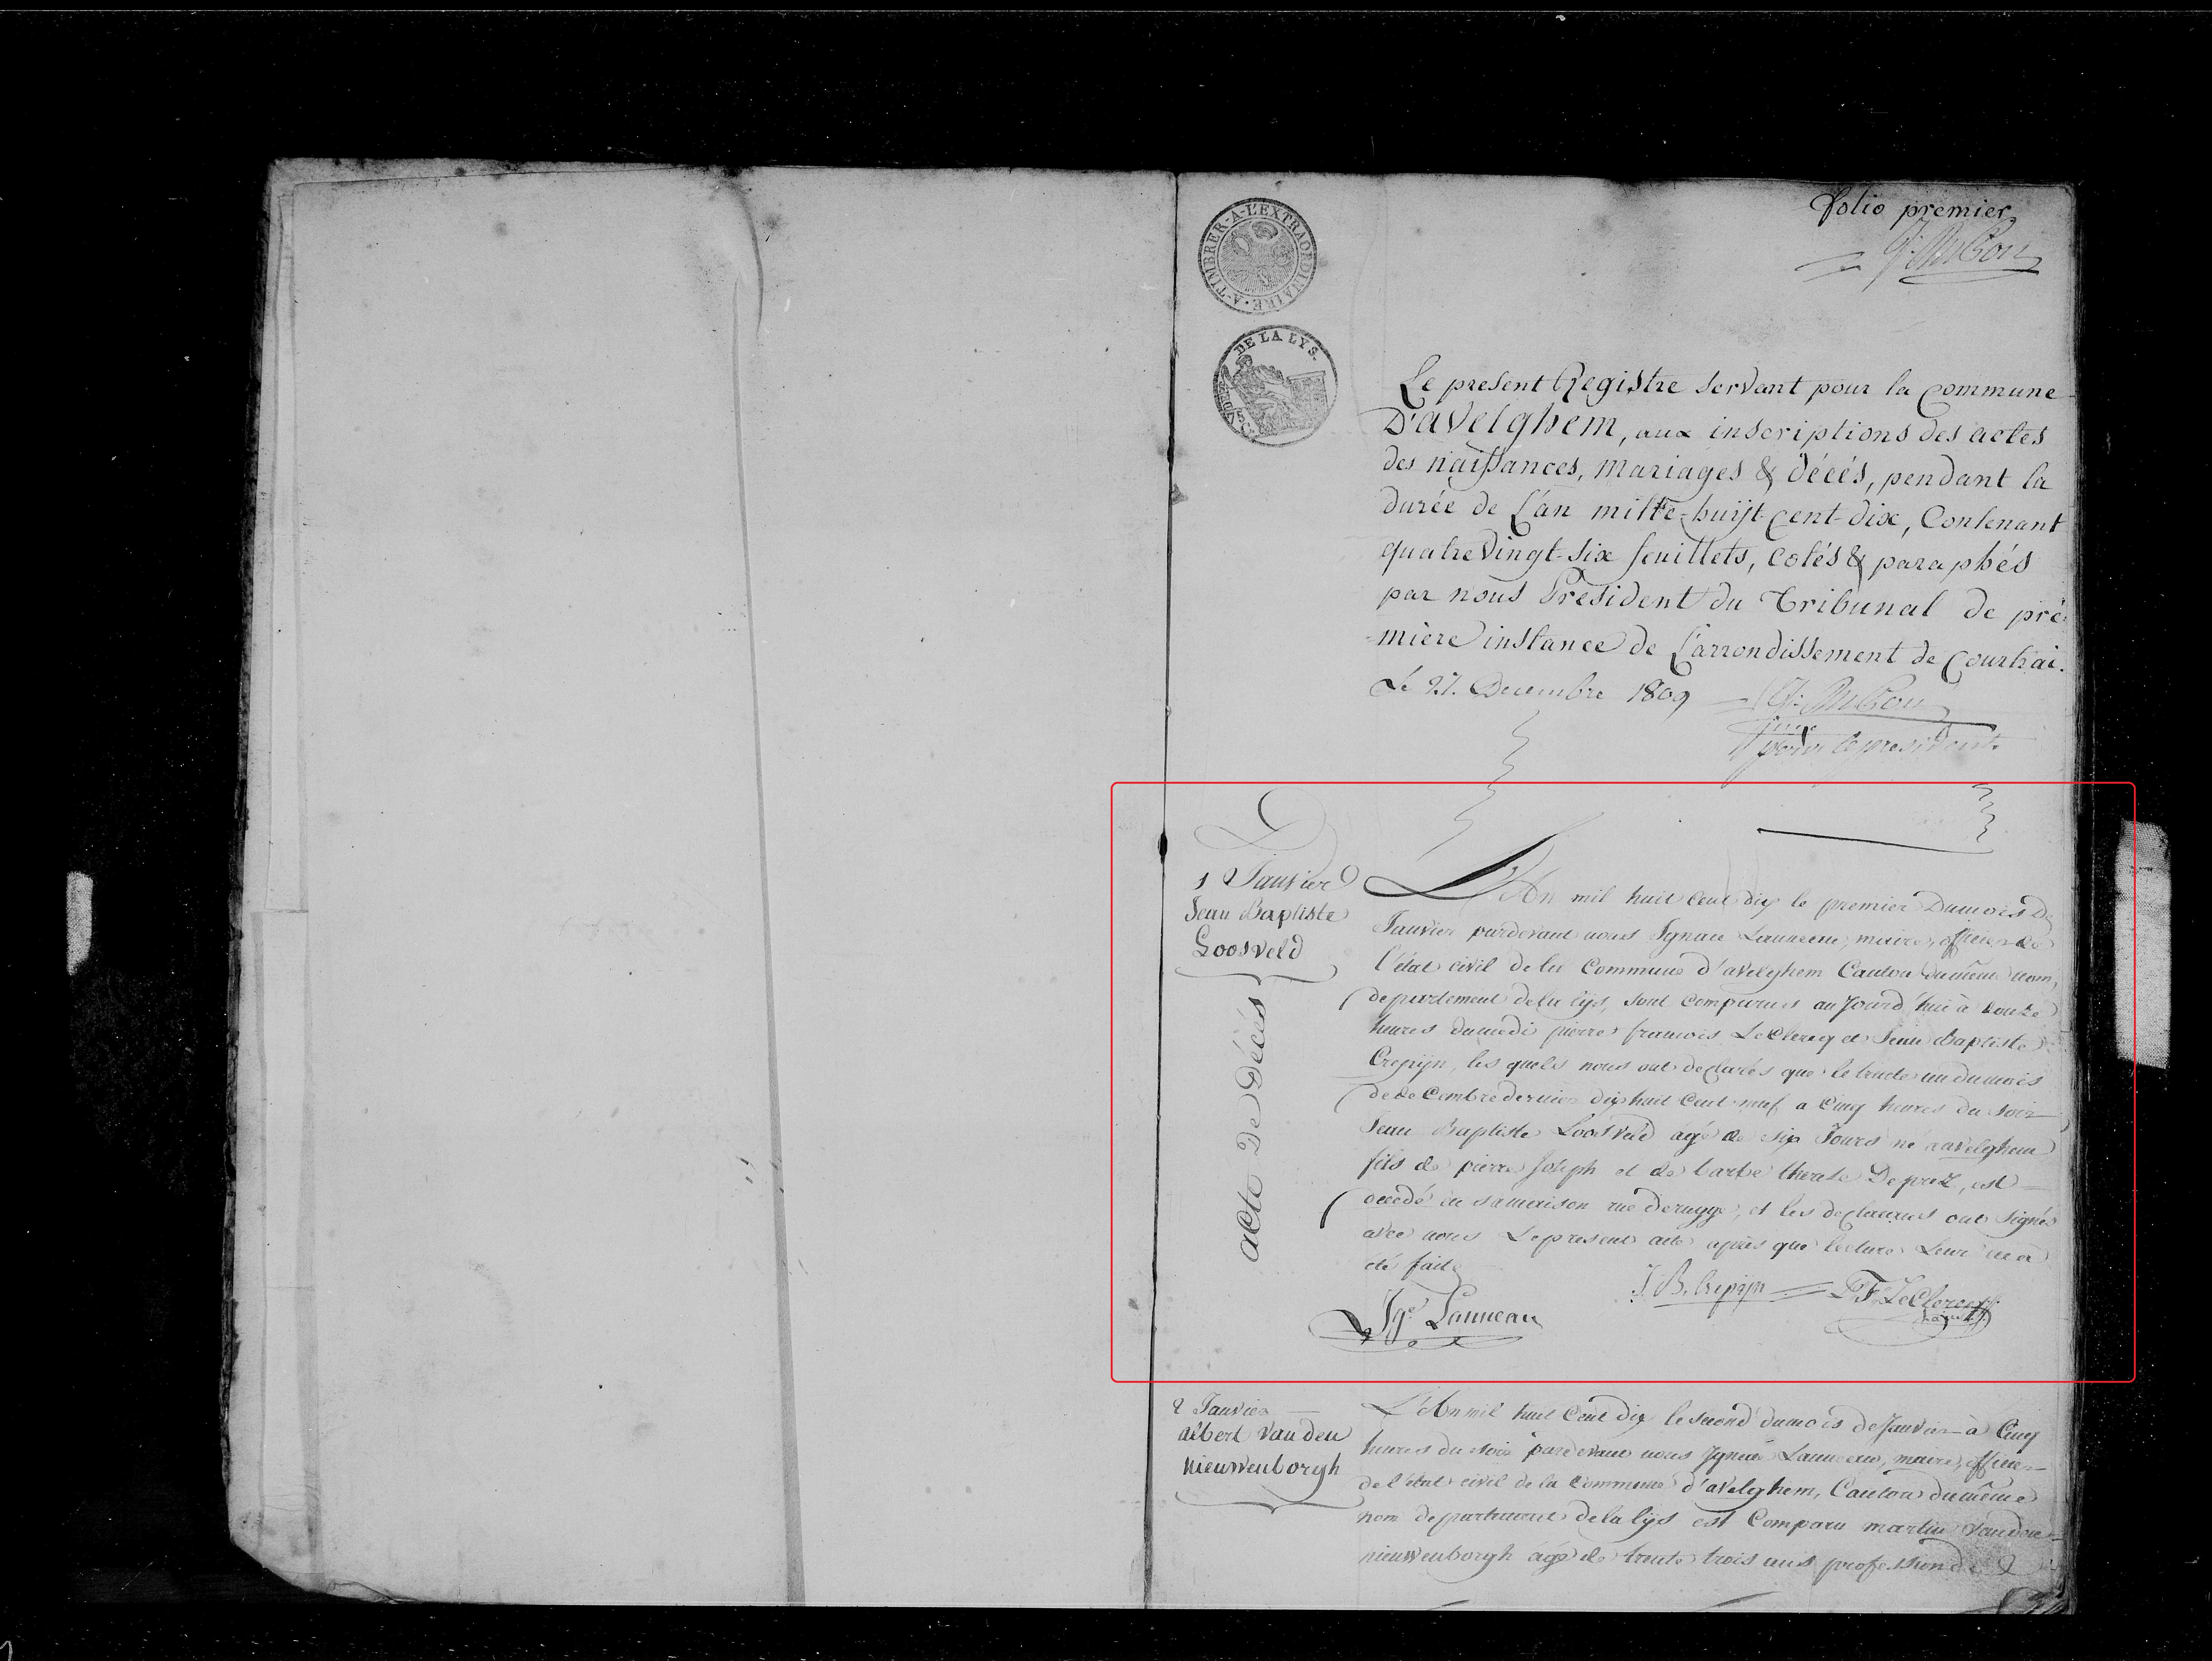 folio premier
A-TIMBRER-A-L'EXTRAORDINAIRE
DE LA LYS.
Le present Registre servant pour la Commune
D'avelghem, aux inscriptions des actes
des naissances, mariages & décés, pendant la
durée de l'an mille-huijt-cent-dix, Contenant
quatrevingt-six feuillets, cotés & paraphés
par nous President du Tribunal de pré-
-mière instance de l'arrondissement de Courtrai.
Le 27. Decembre 1809
juge
pour le president.
1 Janvier
Jean Baptiste
Loosveld
acte de Décés
L'An mil huit cent dix le premier Dumois De
Janvier pardevant nous Ignace Lanneau, maire, officier de
l'état civil de la Commune d'avelghem Canton du même nom,
departement dela lijs, sont comparus au Jourd'hui à douze
heures dumidi pierre francois LeClercq et Jean Baptiste
Crepijn, les quels nous ont declarés que le trente un dumois
de decembre dernier dix huit cent neuf a Cinq heures du soir
Jean Baptiste Loosveld agé de six Jours né a avelghem
fils de pierre Joseph et de barbe therese Deprez, est
decedé en samaison rue derugge, et les declarans ont signés
avec nous Lepresent acte après que lecture Leur en a
eté faite
J. B. Crepijn
P F LeClercq
Ige Lanneau
2 Janvier
albert vanden
nieuwenborgh
L'An mil huit Cent dix le second dumois deJanvier a Cinq
heures du soir pardevant nous Ignace Lanneau, maire, officier
de l'etat civil de la Commune d'avelghem, Canton dumême
nom departement dela lijs est Comparu martin vanden
nieuwenborgh agé de trente trois ans profession de